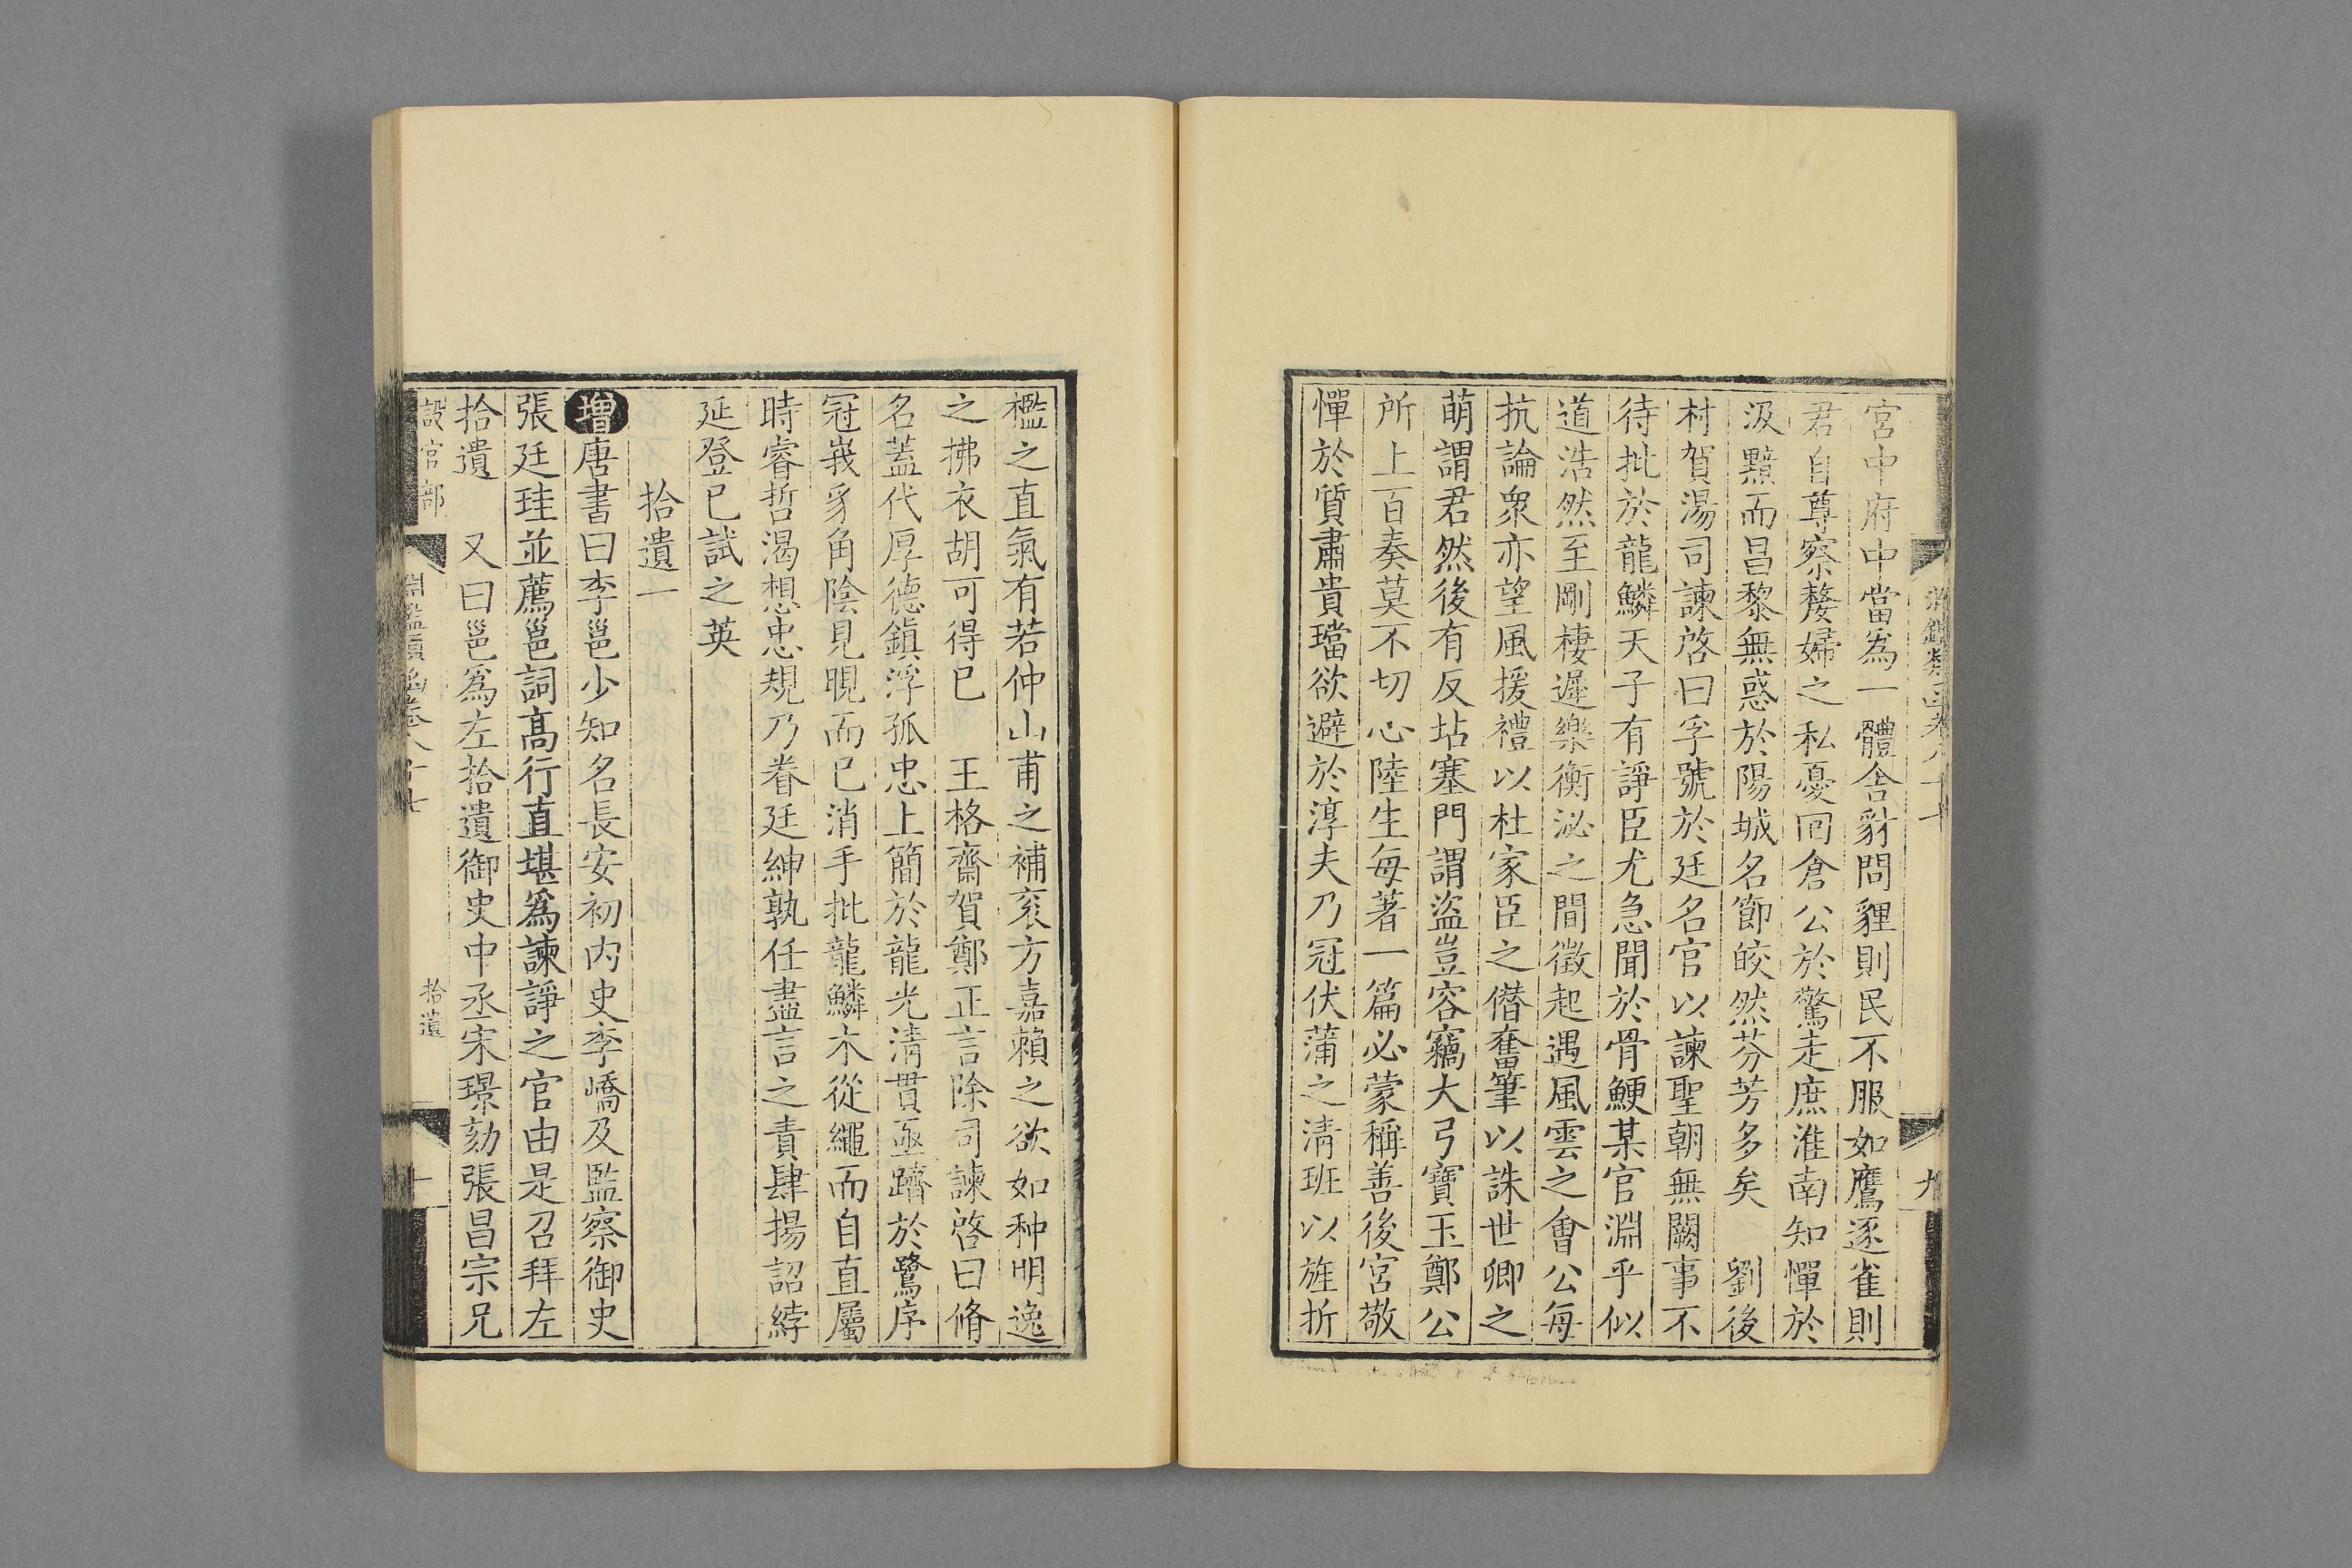 宮中府中當爲一體舍豺問貍則民不服如鷹逐雀則
君自尊察嫠婦之私憂罔倉公於驚走庶淮南知憚於
汲黯而昌黎無惑於陽城名節皎然芬芳多矣　劉後
村賀湯司諫啓曰孚號於廷名官以諫聖朝無闕事不
待批於龍鱗天子有諍臣尤急聞於骨鯁某官淵乎似
道浩然至剛棲遲樂衡泌之間徵起遇風雲之會公每
抗論衆亦望風援禮以杜家臣之僭奮筆以誅世卿之
萌謂君然後有反坫塞門謂盜豈容竊大弓寶玉鄭公
所上百奏莫不切心陸生每著一篇必蒙稱善後宮敬
憚於質肅貴璫欲避於淳夫乃冠伏蒲之清班以旌折
檻之直氣有若仲山甫之補衮方嘉賴之欲如种明逸
之拂衣胡可得已　王格齋賀鄭正言除司諫啓曰脩
名蓋代厚德鎭浮孤忠上簡於龍光清貫亟躋於鷺序
冠峩豸角陰見晛而已消手批龍鱗木從繩而自直屬
時睿哲渴想忠規乃眷廷紳孰任盡言之責肆揚詔綍
延登已試之英
拾遺一
增唐書曰李邕少知名長安初内史李嶠及監察御史
張廷珪並薦邕詞高行直堪爲諫諍之官由是召拜左
拾遺　又曰邕爲左拾遺御史中丞宋璟劾張昌宗兄
設官部　淵鑑類函卷八十七　拾遺　十